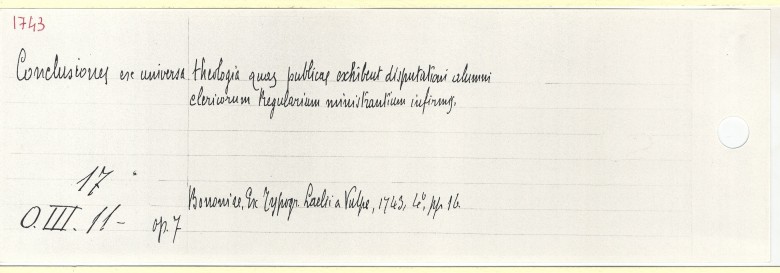 1743
Conclusiones ex universa theologia quas publicae exhibent disputationi alumni
clericorum Regularium ministrantium infirmis.
17
Bononiae, Ex Typogr. Laelii a Vulpe, 1743, 4º, pp. 16.
O.III. 11- op. 7